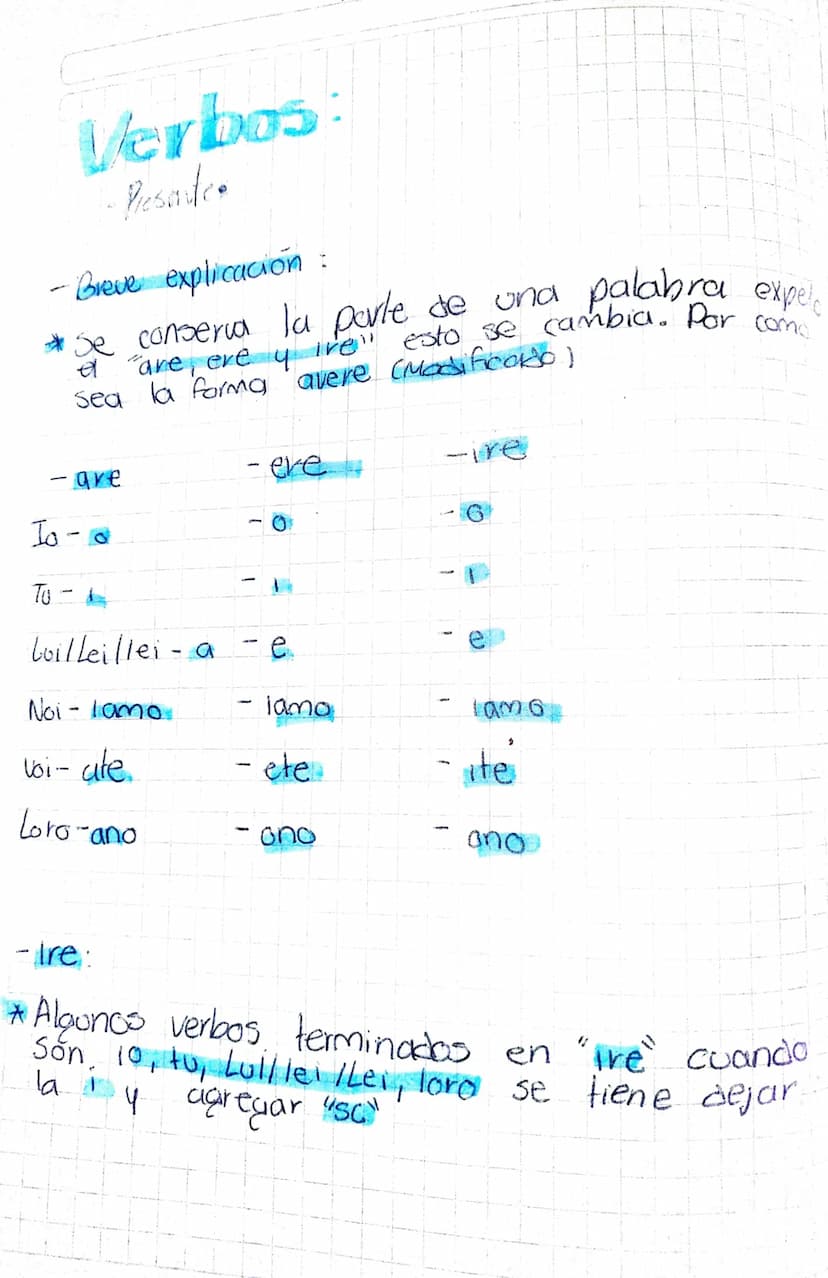 Verbos:
- Presente.
- Breve explicación :
* Se conserva la parte de una palabra
el "are, ere y ire" esto se cambia. Por
sea la forma avere (Modificado)
- are - ere - ire
Io - o - o - o
Tu - i - i - i
Lui/Lei/lei - a - e - e
Noi - iamo - iamo - iamo
Voi - ate - ete - ite
Loro - ano - ono - ono
- Ire:
* Algunos verbos terminados en "ire" cuando
són. io, tu, Lui/lei/Lei, loro se tiene dejar
la i y agregar "sc"